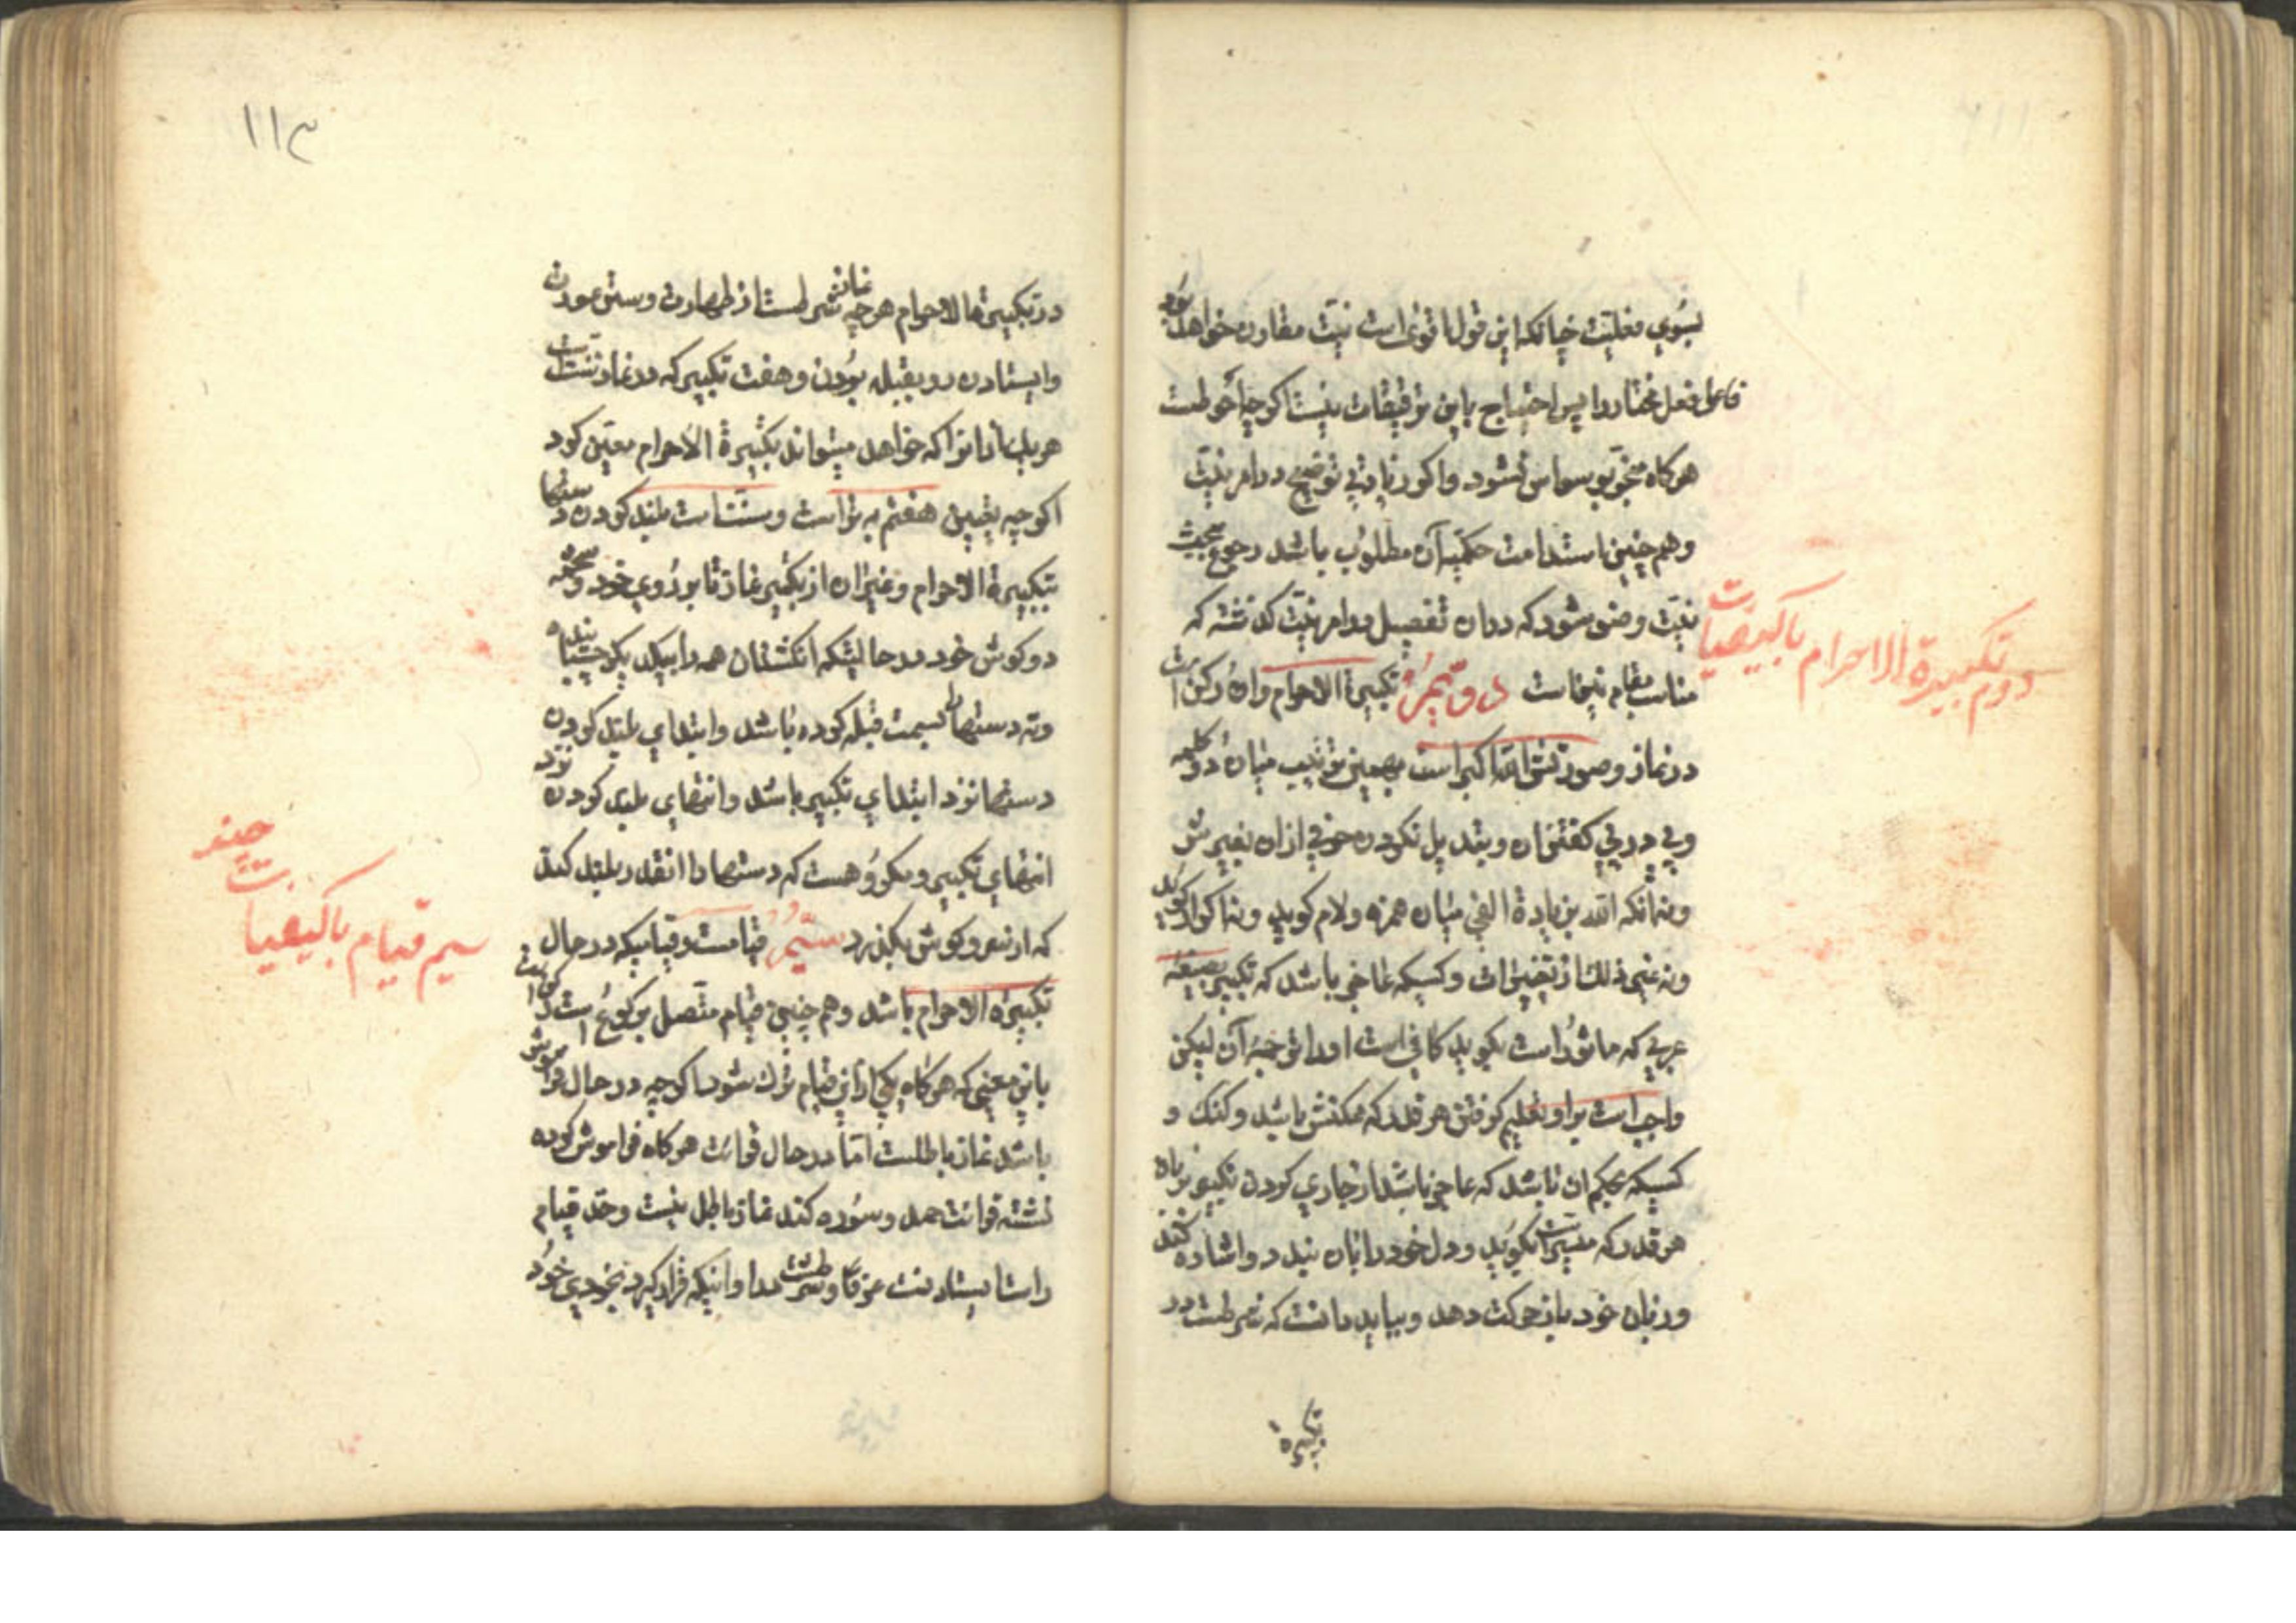 بسوی فعلیت چنانکه این قول اقوی است نیت مقارن خواهد بود
فاعل فعل مختار را پس احتیاج باین توقیفات نیست اگرچه احوط است
هرگاه منجر بوسواس نشود و اگر زیادتی توضیح در امر نیت
و هم چنین استدامت حکمیه آن مطلوب باشد رجوع بمبحث
نیت وضو شود که در ان تفصیل در امر نیت گذشته که
مناسب مقام نیز است دویم تکبیرة الاحرام و ان رکن است
در نماز و صورتش الله اکبر است بهمین ترتیب میان دو کلمه
و پی در پی گفتن ان و تبدیل نکردن حرفی از ان بغیرش
و نه آنکه الله بزیادة الفی میان همزه و لام کوید و نه اکبار کوید
و نه غیر ذلک از تغییرات و کسیکه عاجز باشد که تکبیر بصیغه
عربی که ماثور است بکوید کافی است او را ترجمه آن لیکن
واجب است بر او تعلیم کرفتن هر قدر که ممکنش باشد و کنک و
کسیکه بحکم ان باشد که عاجز باشد از جاری کردن تکبیر بزبان
هر قدر که میسر است بکوید و دل خود را بان بندد و اشاره کند
و زبان خود را نیز حرکت دهد و بباید دانست که شرطست در
تکبیرة
دوم تکبیرة الاحرام با کیفیات
۱۱۳
در تکبیرة الاحرام هرچه در نماز شرطست از طهارت و ستر عورت
و ایستادن رو بقبله بودن و هفت تکبیر که در نماز سنت است
هر یک از انرا که خواهد میتواند بتکبیرة الاحرام معین کرد
اکرچه تعیین هفتم بهتر است و سنت است بلند کردن دستها
بتکبیرة الاحرام و غیر ان از تکبیر نماز تا بروی خود و نرمه
دو کوش خود در حالتیکه انکشتان همه را بیکدیکر چسپانیده
و ته دستها را بسمت قبله کرده باشد و ابتدای بلند کردن
دستها نزد ابتدای تکبیر باشد و انتهای بلند کردن نزد
انتهای تکبیر و مکروهست که دستها را انقدر بلند کند
که از سر و کوش بکذرد سیم قیامست و قیامیکه در حال
تکبیرة الاحرام باشد و هم چنین قیام متصل برکوع رکن است
باین معنی که هرکاه یکی از این قیام ترک شود اکرچه در حال فراموشی
باشد نماز باطلست اما در حال قرائت هرکاه فراموش کرده
نشسته قرائت حمد و سوره کند نماز باطل نیست و حد قیام
راست ایستادنست عرفا و شرطست در او اینکه قرار کیرد بخودی خود
سیم قیام با کیفیات چند